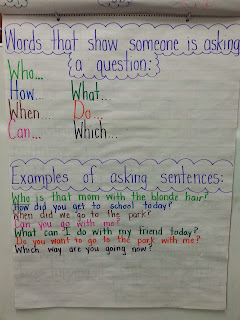 Words that show someone is asking
a question:
Who...
How... What...
When... Do...
Can... Which...
Examples of asking sentences:
Who is that mom with the blonde hair?
How did you get to school today?
When did we go to the park?
Can you go with me?
What can I do with my friend today?
Do you want to go to the park with me?
Which way are you going now?